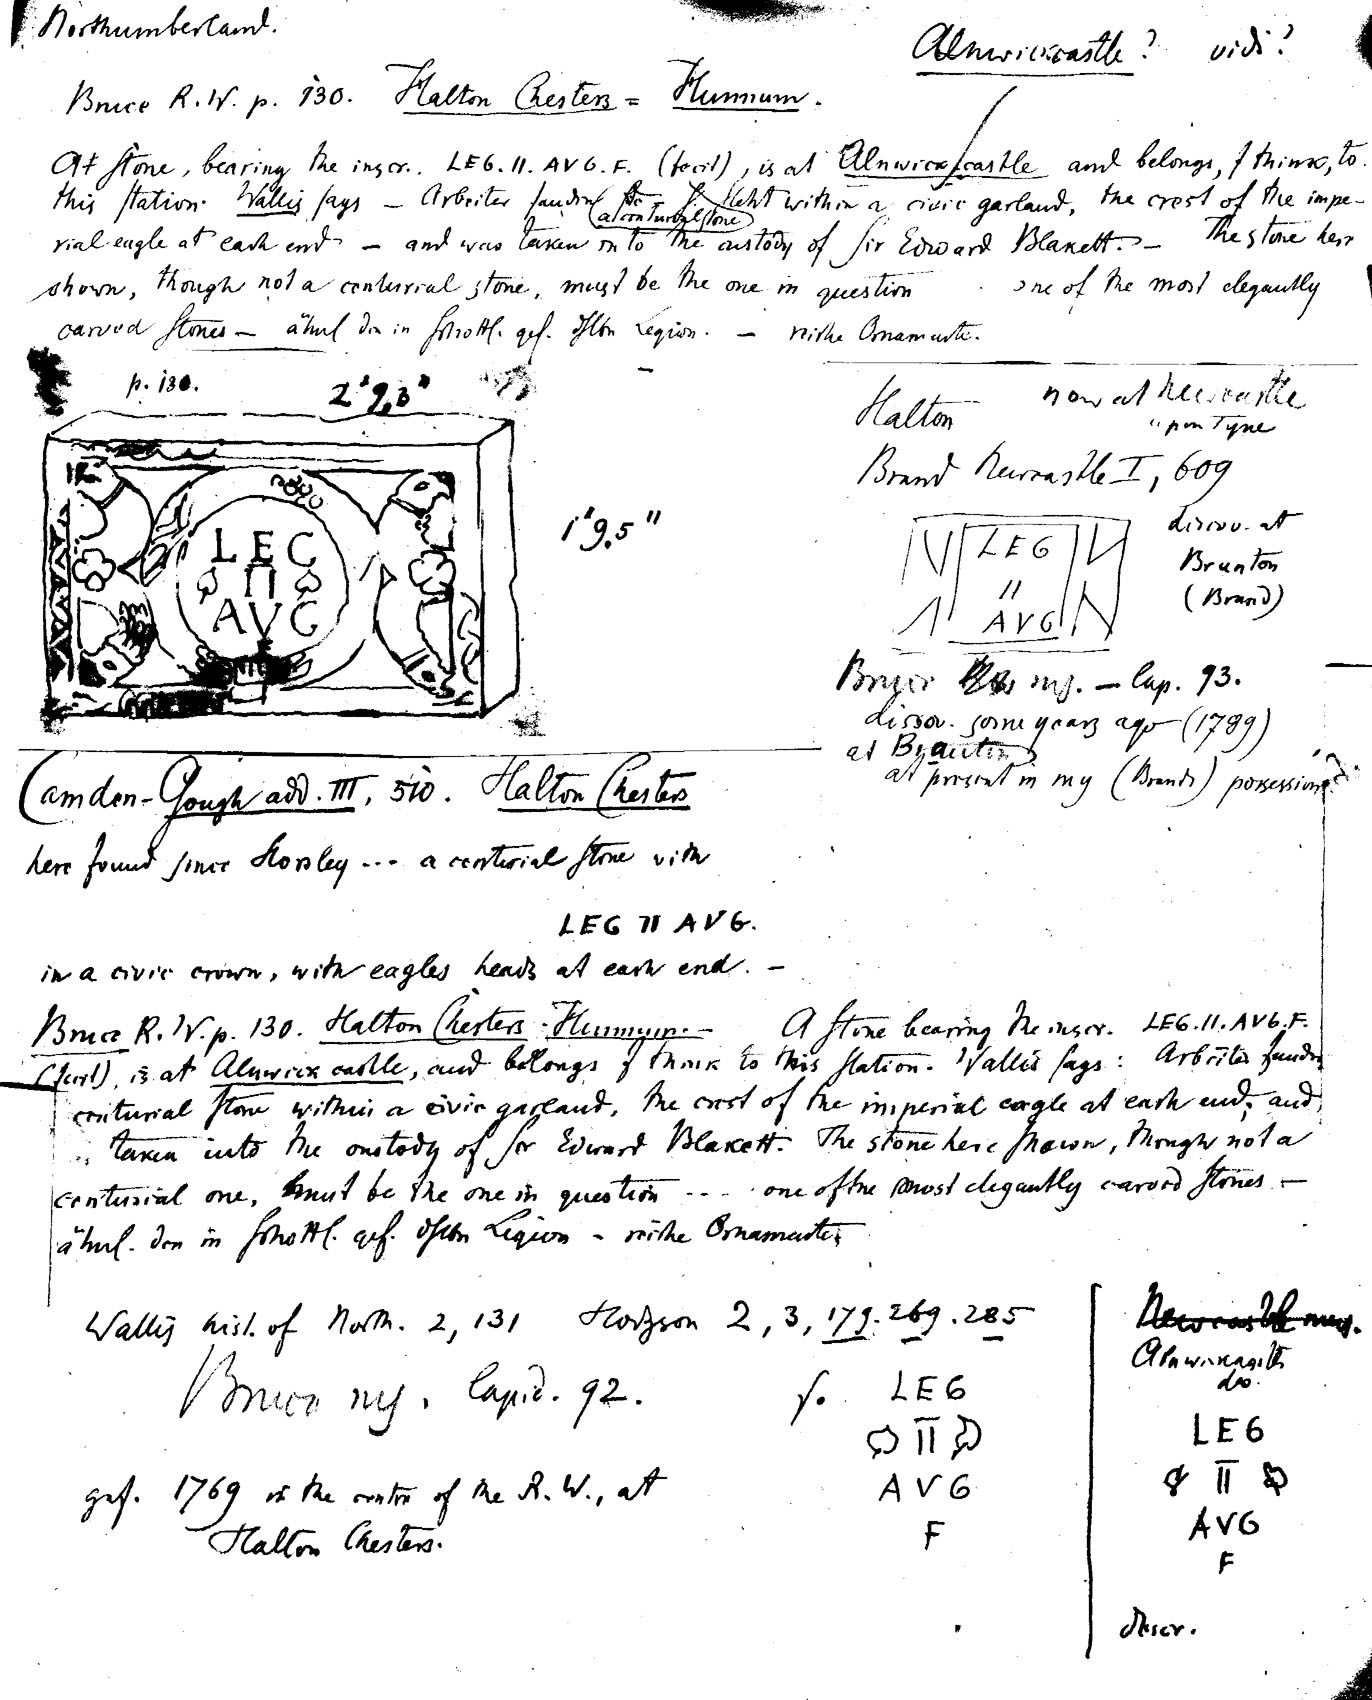 Northumberland.
Alnwickcastle? vidi?
Bruce R.W. p. 130. Halton Chesters = Hunnum.
A stone, bearing the inscr. LEG. II. AVG. F. (fecit), is at Alnwick castle and belongs, I think, to
this station. Wallis says — Arbeiter fanden within a civic garland, the crest of the impe-
(a centurial stone)
rial eagle at each end — and was taken into the custody of Sir Edward Blakett. — The stone here
shown, though not a centurial stone, must be the one in question one of the most elegantly
carved stones — ähnl. den in Schottl. gef. ders. Legion. — reiche Ornamente.
p. 130.
2' 9,3"
LEG
II
AVG
1' 9,5"
Halton now at Newcastle
upon Tyne
Brand Newcastle I, 609
LEG
II
AVG
discov. at
Brunton
(Brand)
Bruce ms. — lap. 93.
discov. some years ago (1789)
at Brunton
at present in my (Brands) possession
Camden-Gough add. III, 510. Halton Chesters
here found since Horsley --- a centurial stone with
LEG II AVG.
in a civic crown, with eagles heads at each end. —
Bruce R.W. p. 130. Halton Chesters - Hunnum. — A stone bearing the inscr. LEG. II. AVG. F.
(fecit), is at Alnwick castle, and belongs I think to this station. Wallis says: Arbeiter fanden
centurial stone within a civic garland, the crest of the imperial eagle at each end, and
taken into the custody of Sir Edward Blakett. The stone here shown, though not a
centurial one, must be the one in question --- one of the most elegantly carved stones —
ähnl. den in Schottl. gef. ders. Legion — reiche Ornamente.
Wallis hist. of North. 2, 131 Hodgson 2, 3, 179. 269. 285
Bruce ms. lapid. 92.
gef. 1769 in the centre of the R.W., at
Halton Chesters.
LEG
II
AVG
F
Newcastle mus.
Alnwickcastle
do.
LEG
II
AVG
F
descr.